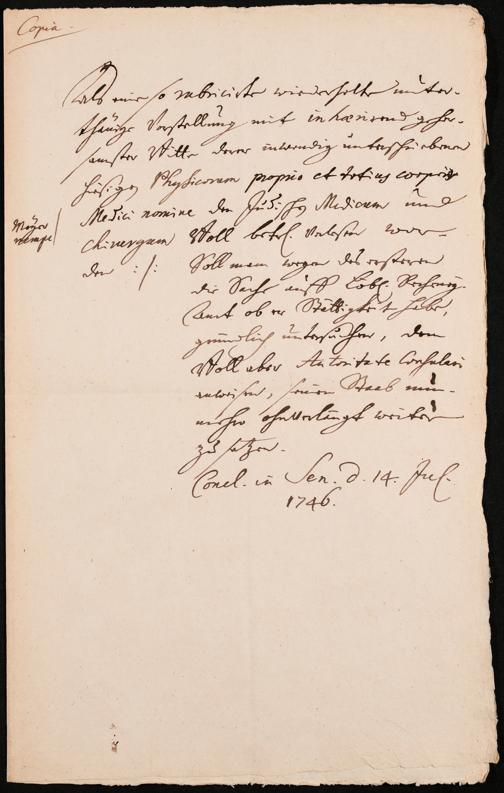 Copia.
5
Als eine so rubricirte wiederholte unter-
thänige Vorstellung mit inhærirend gehor-
samster Bitte derer inwendig unterschriebenen
hiesigen Physicorum proprio et totius corporis
Medici nomine den Jüdischen Medicum und
Chirurgum Wolf betr. verlesen wor-
den :/:
Soll man wegen des ersteren
die Sache auff Löbl. Rechney-
Amt ob er Stättigkeit habe,
gründlich untersuchen, dem
Wolf aber Autoritate Consulari
anweisen, seinen Staab nun-
mehro ohnverlängt weiter
zu setzen.
Concl. in Sen. d. 14. Jul.
1746.